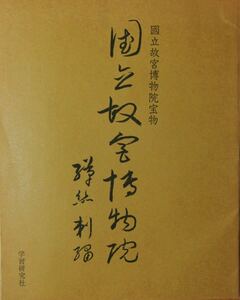 國立故宮博物院宝物
国立故宮博物院
緙絲刺繡
学習研究社